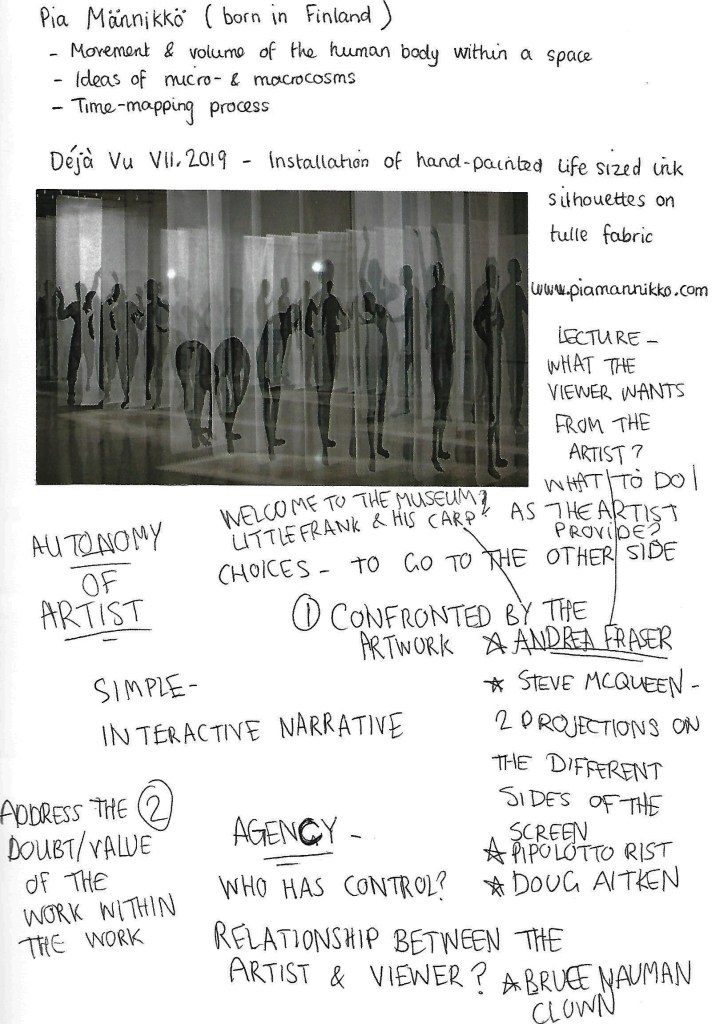 Pia Männikkö (born in Finland)
- Movement & volume of the human body within a space
- Ideas of micro- & macrocosms
- Time-mapping process
Déjà Vu VII. 2019 - Installation of hand-painted life sized ink
silhouettes on
tulle fabric
www.piamannikko.com
LECTURE -
WHAT THE
VIEWER WANTS
FROM THE
ARTIST?
WHAT TO DO I
AS THE ARTIST
PROVIDE?
WELCOME TO THE MUSEUM?
LITTLE FRANK & HIS CARP?
CHOICES - TO GO TO THE OTHER SIDE
AUTONOMY
OF
ARTIST
① CONFRONTED BY THE
ARTWORK
☆ ANDREA FRASER
☆ STEVE MCQUEEN -
2 PROJECTIONS ON
THE DIFFERENT
SIDES OF THE
SCREEN
☆ PIPOLOTTO RIST
☆ DOUG AITKEN
SIMPLE -
INTERACTIVE NARRATIVE
ADDRESS THE ②
DOUBT/VALUE
OF THE
WORK WITHIN
THE WORK
AGENCY -
WHO HAS CONTROL?
RELATIONSHIP BETWEEN THE
ARTIST & VIEWER?
☆ BRUCE NAUMAN
CLOWN